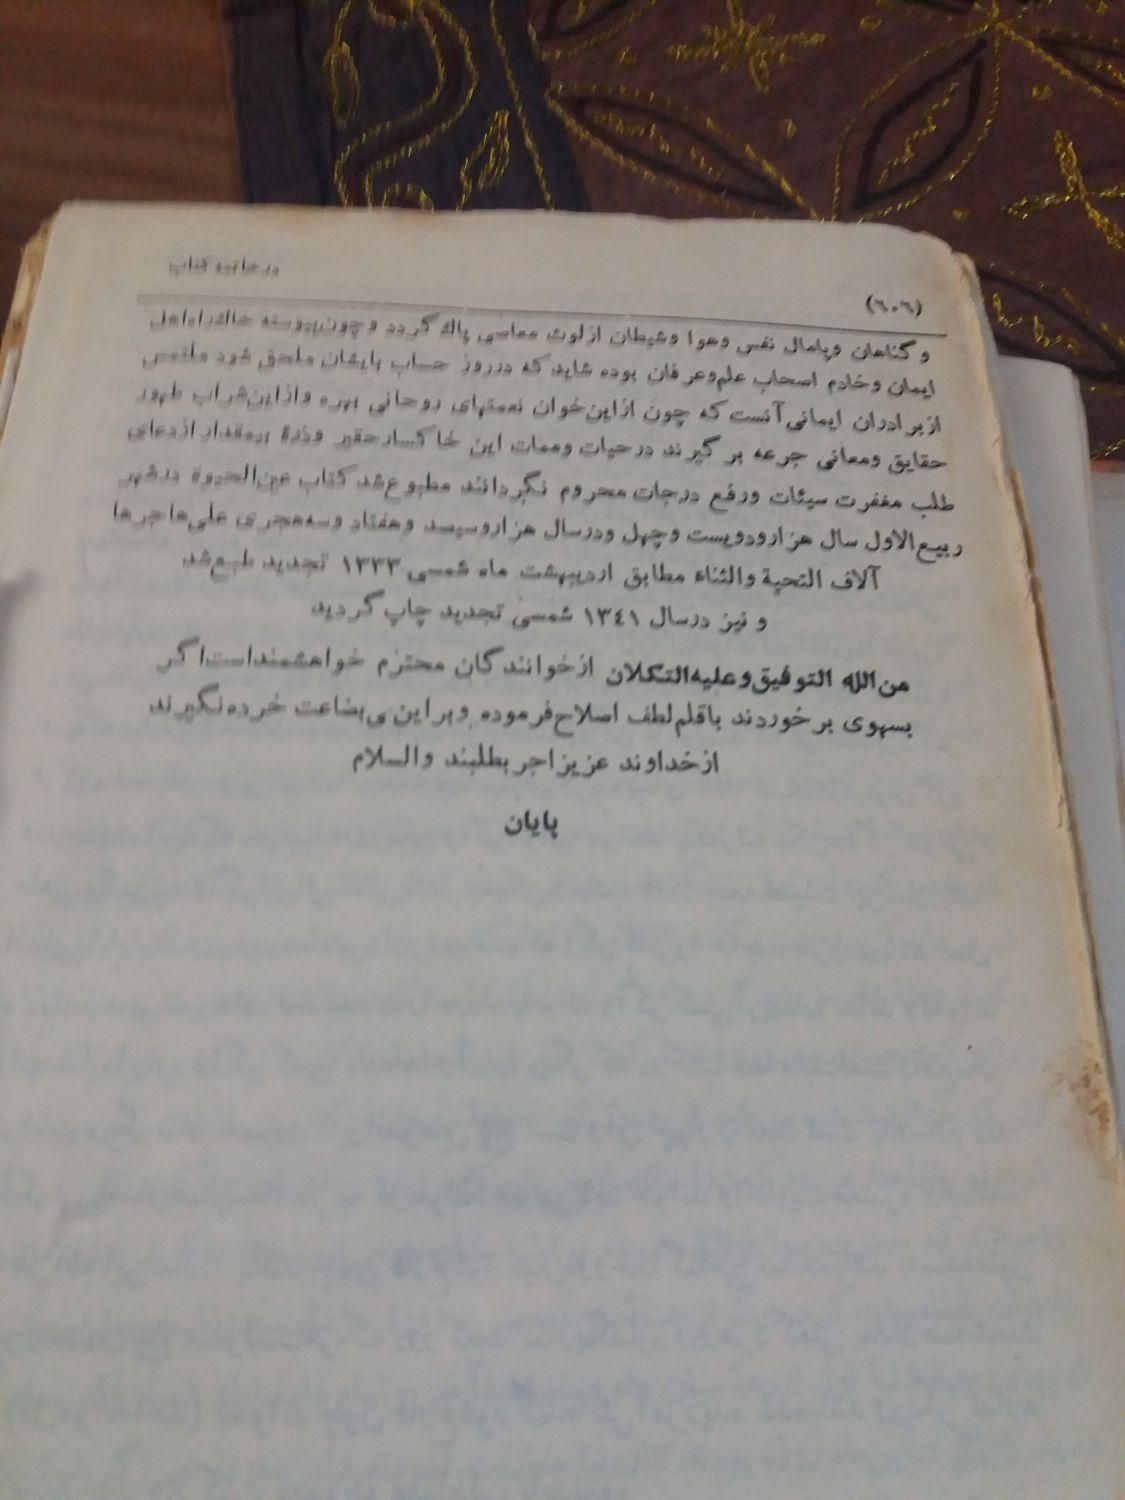 (٦٠٦)
در خاتمه کتاب
و گناهان وپامال نفس وهوا وشیطان ازلوث معاصی پاك گردد وچون‌پیوسته خاك‌راه‌اهل
ایمان وخادم اصحاب علم‌وعرفان بوده شاید که درروز حساب بایشان ملحق شود ملتمس
ازبرادران ایمانی‌آنست که چون ازاین‌خوان نعمتهای روحانی بهره وازاین‌شراب طهور
حقایق ومعانی جرعه بر گیرند درحیات وممات این خاکسارحقیر وذرهٔ بیمقدار ازدعای
طلب مغفرت سیئات ورفع درجات محروم نگردانند مطبوع‌شد کتاب عین‌الحیوة درشهر
ربیع‌الاول سال هزارودویست وچهل ودرسال هزاروسیصد وهفتاد وسه‌هجری علی‌هاجرها
آلاف التحیة والثناء مطابق اردیبهشت ماه شمسی ۱۳۳۳ تجدید طبع‌شد
و نیز درسال ۱۳٤۱ شمسی تجدید چاپ گردید
من‌الله التوفیق‌وعلیه‌التکلان ازخوانندگان محترم خواهشمنداست‌اگر
بسهوی برخوردند باقلم‌لطف اصلاح‌فرموده وبراین‌بی‌بضاعت خرده‌نگیرند
ازخداوند عزیزاجر بطلبند والسلام
پایان